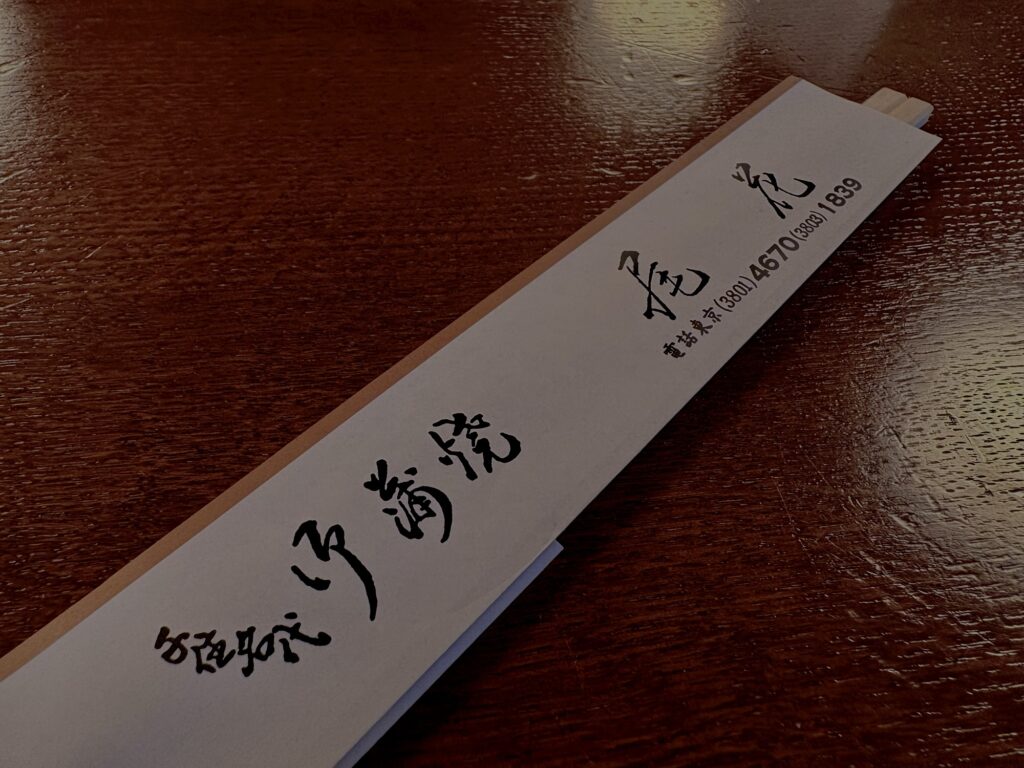 御蒲焼
尾花
電話東京(3801)4670(3803)1839